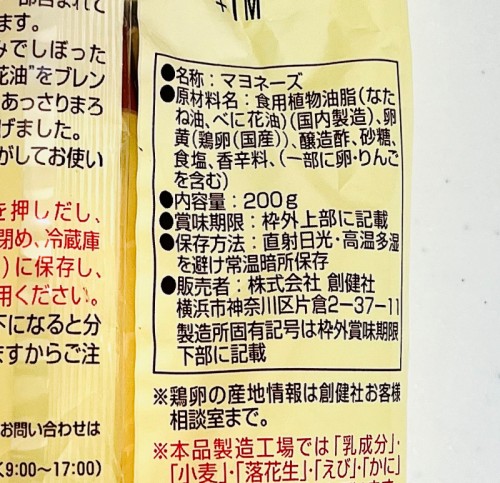 ます。
みでしぼった
花油"をブレン
あっさりまろ
げました。
がしてお使い
を押しだし、
閉め、冷蔵庫
)に保存し、
用ください。
下になると分
ますからご注
お問い合わせは
(9:00〜17:00)
●名称：マヨネーズ
●原材料名：食用植物油脂(なた
ね油、べに花油)(国内製造)、卵
黄(鶏卵(国産))、醸造酢、砂糖、
食塩、香辛料、(一部に卵・りんご
を含む)
●内容量：200g
●賞味期限：枠外上部に記載
●保存方法：直射日光・高温多湿
を避け常温暗所保存
●販売者：株式会社 創健社
横浜市神奈川区片倉2-37-11
製造所固有記号は枠外賞味期限
下部に記載
※鶏卵の産地情報は創健社お客様
相談室まで。
※本品製造工場では「乳成分」・
「小麦」・「落花生」・「えび」・「かに」